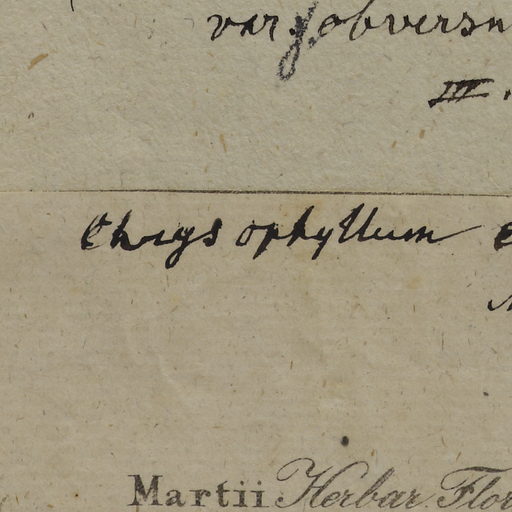 var. obversa
III.
Chrysophyllum
Martii Herbar. Flor